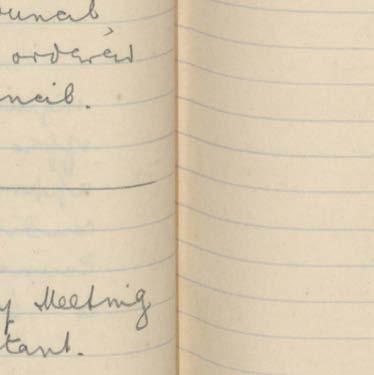 ounal,
ordered
ncil.
y Meeting
tant.